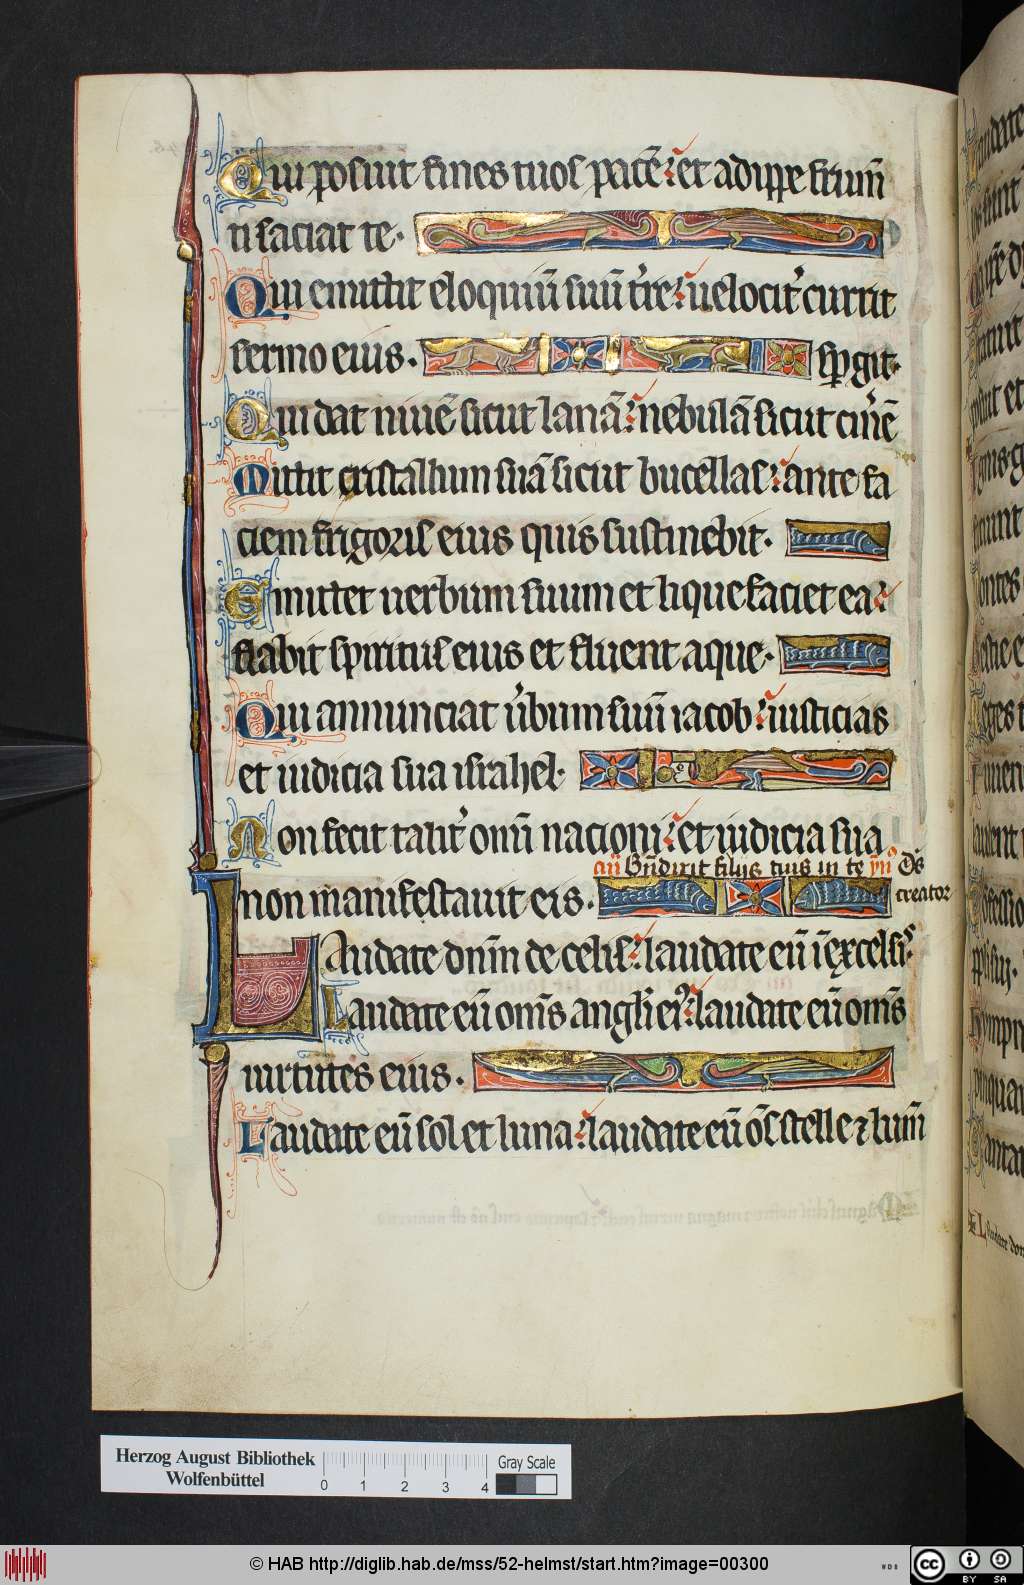 Qui posuit fines tuos pacē: et adippe frum̄
ti saciat te.
Qui emittit eloquiū suū t̓re: uelocit̓ currit
sermo eius. sp̱git.
Qui dat niuē sicut lanā: nebulā sicut cin̓ē
Mittit cristallum suā sicut bucellas: ante fa
ciem frigoris eius quis sustinebit.
Emittet uerbum suum et liquefaciet ea:
flabit spiritus eius et fluent aque.
Qui annunciat u̓bum suū iacob: iusticias
et iudicia sua israhel.
Non fecit talit̓ om̄i nacioni: et iudicia sua
filiis tuis in te yn̄o Ds̄
non manifestauit eis. creator
Laudate dn̄m de celis: laudate eū ī excelsis
Laudate eū om̄s angli ei᷒: laudate eū om̄s
uirtutes eius.
Laudate eū sol et luna: laudate eū om̄s stelle ⁊ lum̄
Herzog August Bibliothek
Wolfenbüttel
0 1 2 3 4
Gray Scale
© HAB http://diglib.hab.de/mss/52-helmst/start.htm?image=00300
WDB
cc BY SA